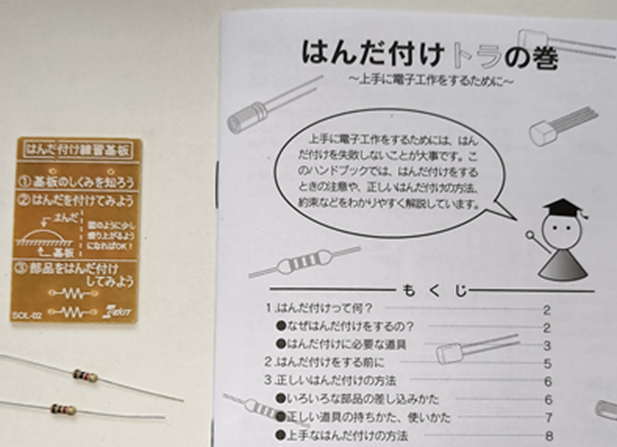 はんだ付け練習基板
①基板のしくみを知ろう
②はんだを付けてみよう
はんだ
基板
図のように少し
盛り上がるよう
になればOK!
③部品をはんだ付け
してみよう
SOL-02
はんだ付けトラの巻
～上手に電子工作をするために～
上手に電子工作をするためには、はん
だ付けを失敗しないことが大事です。こ
のハンドブックでは、はんだ付けをする
ときの注意や、正しいはんだ付けの方法、
約束などをわかりやすく解説しています。
もくじ
1.はんだ付けって何？ 2
●なぜはんだ付けをするの？ 2
●はんだ付けに必要な道具 3
2.はんだ付けをする前に 5
3.正しいはんだ付けの方法 6
●いろいろな部品の差し込みかた 6
●正しい道具の持ちかた、使いかた 7
●上手なはんだ付けの方法 8